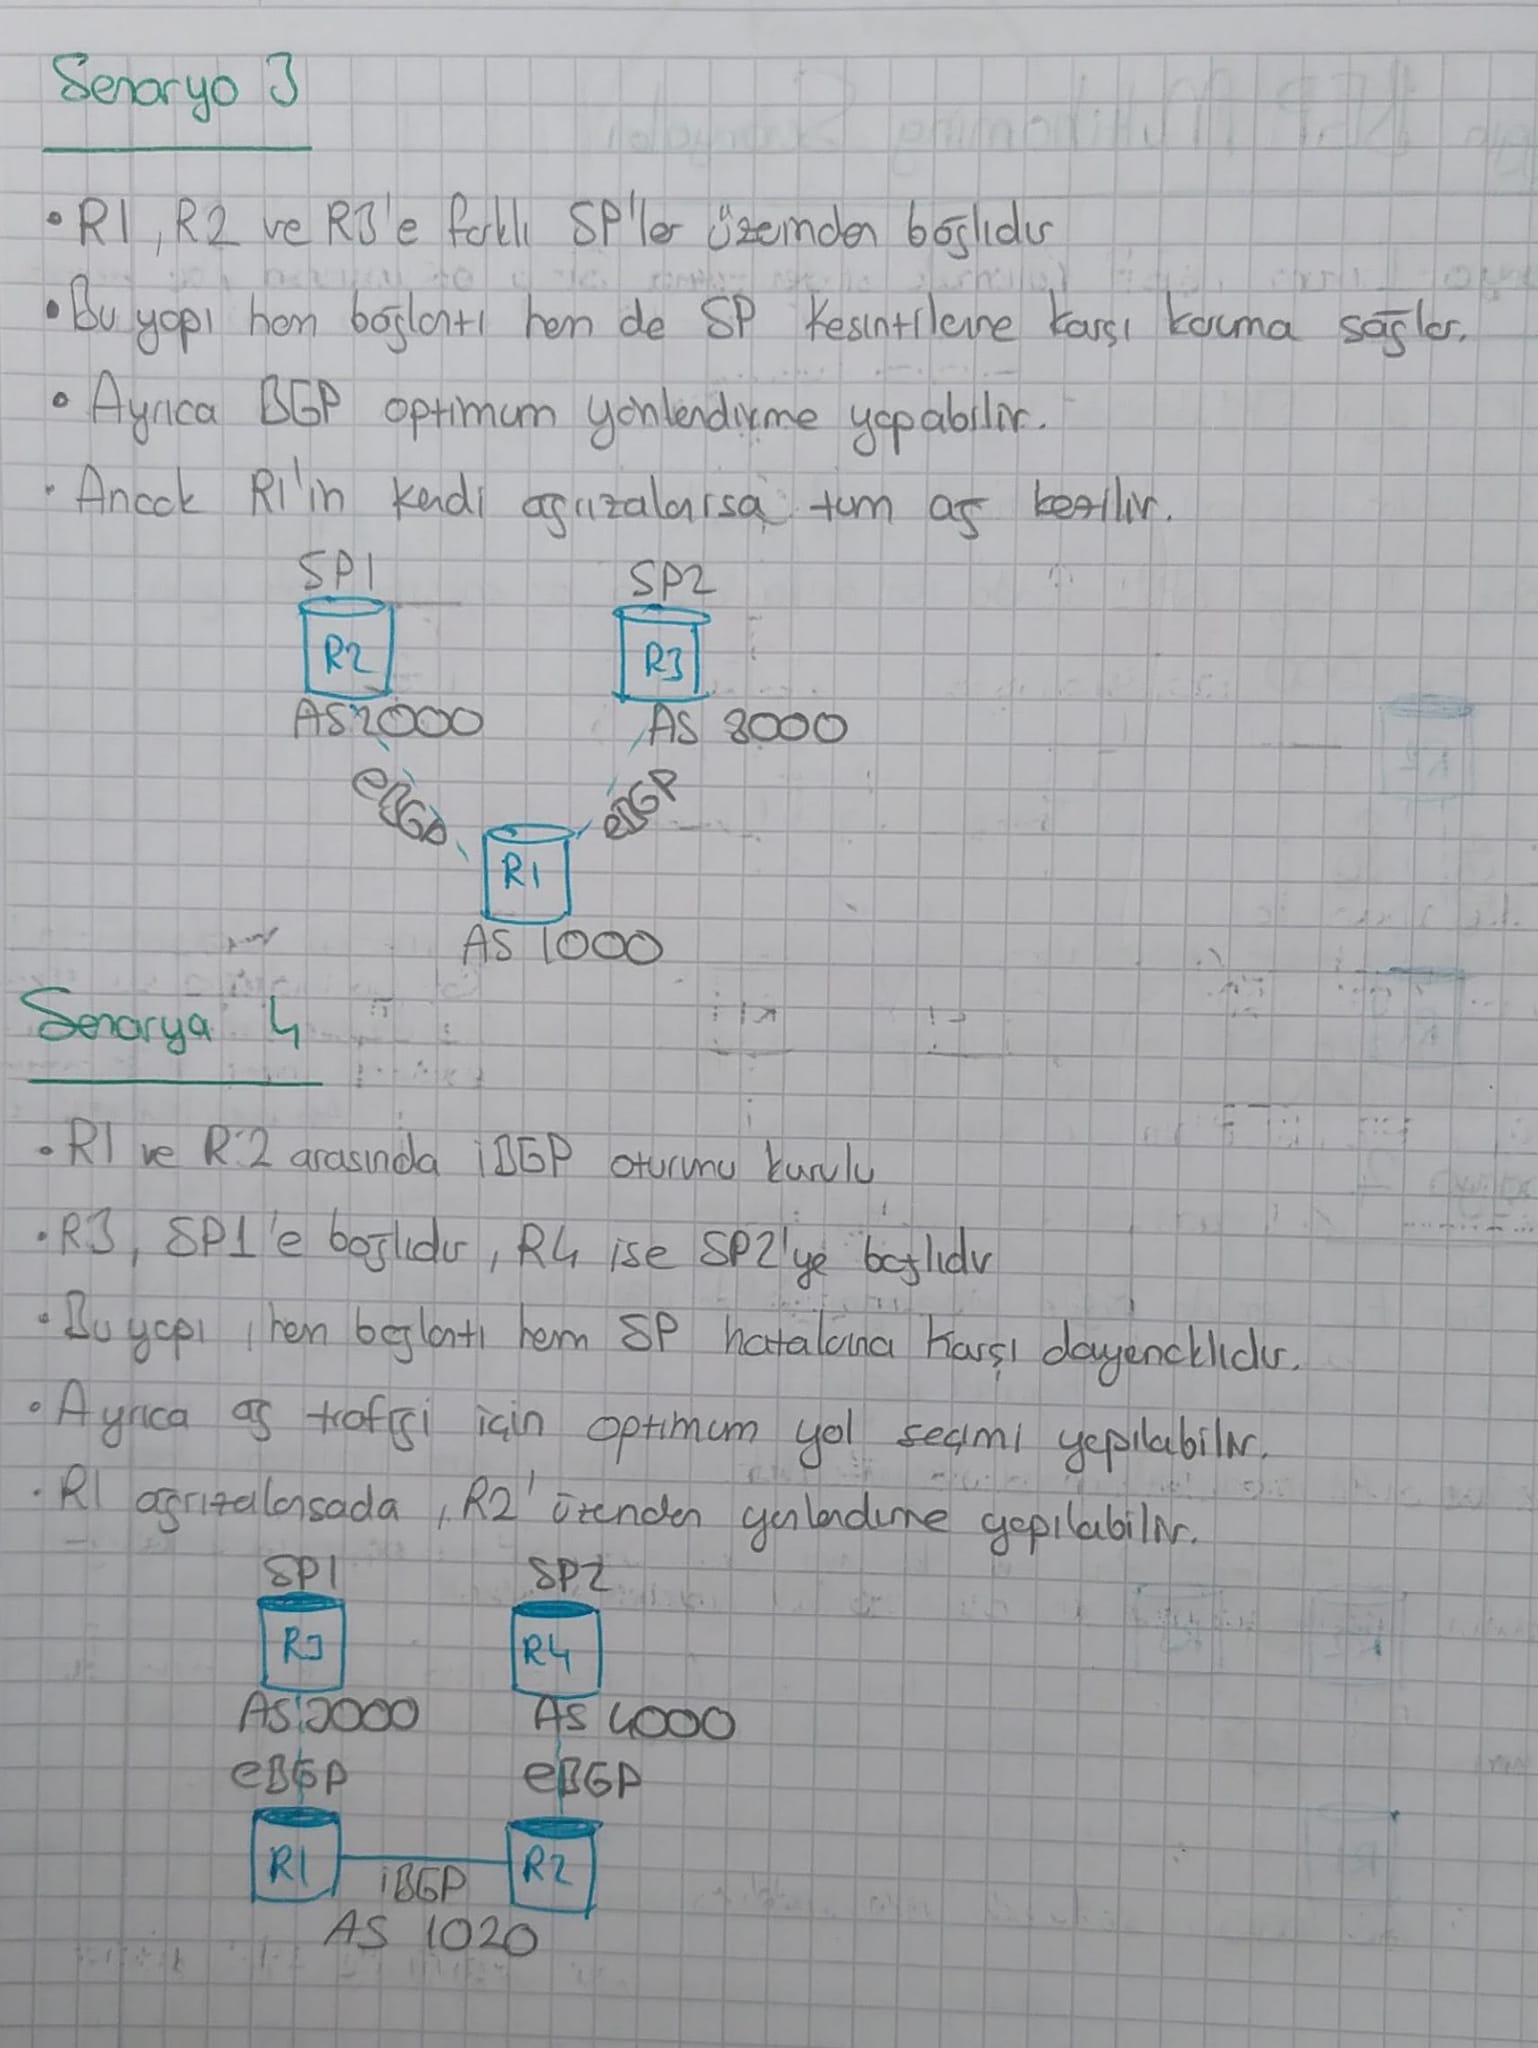 Senaryo 3
• R1, R2 ve R3'e farklı SP'ler üzerinden bağlıdır
• Bu yapı hem bağlantı hem de SP kesintilerine karşı koruma sağlar.
• Ayrıca BGP optimum yönlendirme yapabilir.
• Ancak R1'in kendi ağrızalanırsa tüm ağ kesilir.
SP1 SP2
R2 R3
AS 2000 AS 3000
eBGP eBGP
R1
AS 1000
Senarya 4
• R1 ve R2 arasında iBGP oturumu kurulu
• R3, SP1'e bağlıdır, R4 ise SP2'ye bağlıdır
• Bu yapı, hem bağlantı hem SP hatalarına karşı dayanıklıdır.
• Ayrıca ağ trafiği için optimum yol seçimi yapılabilir.
• R1 ağrızalansada, R2' üzerinden yönlendirme yapılabilir.
SP1 SP2
R3 R4
AS 3000 AS 4000
eBGP eBGP
R1 iBGP R2
AS 1020